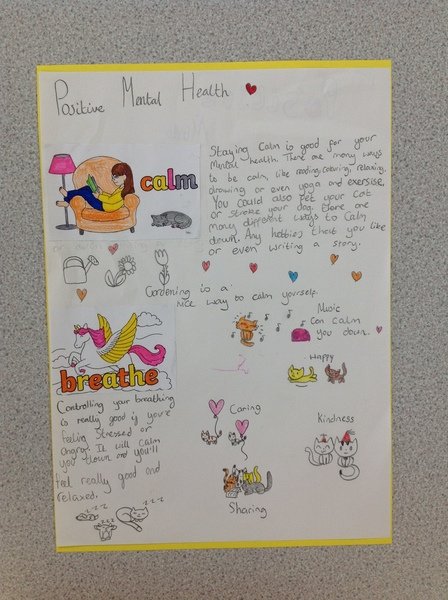 Positive Mental Health
Staying Calm is good for your
Mental health. There are many ways
to be calm, like reading, colouring, relaxing,
drawing or even yoga and exercise.
You could also pet your cat
or stroke your dog. There are
many different ways to calm
down. Any hobbies that you like
or even writing a story.
calm
Gardening is a
nice way to calm yourself.
Music
can calm
you down.
Happy
breathe
Controlling your breathing
is really good if you're
feeling stressed or
angry. It will calm
you down and you'll
feel really good and
relaxed.
Caring
Kindness
Sharing
zzz
zzz
zzz